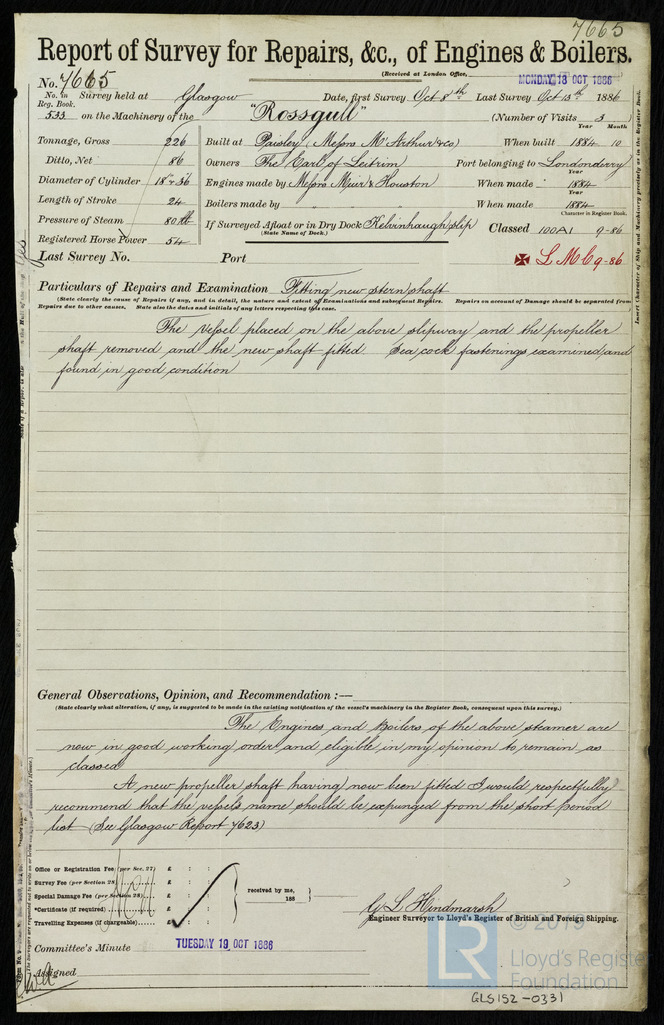 7665
Report of Survey for Repairs, &c., of Engines & Boilers.
(Received at London Office,
MONDAY 18 OCT 1886
No. 7665
No. in Reg. Book. Survey held at Glasgow Date, first Survey Oct 8th Last Survey Oct 13th 1886
533 on the Machinery of the "Rossgull" (Number of Visits 3)
Year Month
Tonnage, Gross 226 Built at Paisley (Messrs McArthur & Co) When built 1884 10
Ditto, Net 86 Owners The Earl of Leitrim Port belonging to Londonderry
Year
Diameter of Cylinder 18" & 36 Engines made by Messrs Muir & Houston When made 1884
Year
Length of Stroke 24 Boilers made by " " When made 1884
Character in Register Book.
Pressure of Steam 80 lb If Surveyed Afloat or in Dry Dock Kelvinhaugh Slip Classed 100A1 9-86
(State Name of Dock.)
Registered Horse Power 54
Last Survey No. Port ✠ L.M.C 9-86
Particulars of Repairs and Examination Fitting new stern shaft
(State clearly the cause of Repairs if any, and in detail, the nature and extent of Examinations and subsequent Repairs. Repairs on account of Damage should be separated from
Repairs due to other causes. State also the dates and initials of any letters respecting this case.
The vessel placed on the above slipway and the propeller
shaft removed and the new shaft fitted Sea cock fastenings examined and
found in good condition
General Observations, Opinion, and Recommendation :—
(State clearly what alteration, if any, is suggested to be made in the existing notification of the vessel's machinery in the Register Book, consequent upon this survey.)
The Engines and Boilers of the above steamer are
now in good working order and eligible in my opinion to remain as
classed
A new propeller shaft having now been fitted I would respectfully
recommend that the vessel's name should be expunged from the short period
list (See Glasgow Report 7623)
Office or Registration Fee (per Sec. 27) £ : :
Survey Fee (per Section 28) £ : :
Special Damage Fee (per Section 28) £ : :
*Certificate (if required) £ : :
Travelling Expenses (if chargeable) £ : :
received by me,
188
G L Hindmarsh
Engineer Surveyor to Lloyd's Register of British and Foreign Shipping.
Committee's Minute TUESDAY 19 OCT 1886
Assigned
Insert Character of Ship and Machinery precisely as in the Register Book.
© 2019
LR
Lloyd's Register
Foundation
GLS152-0331